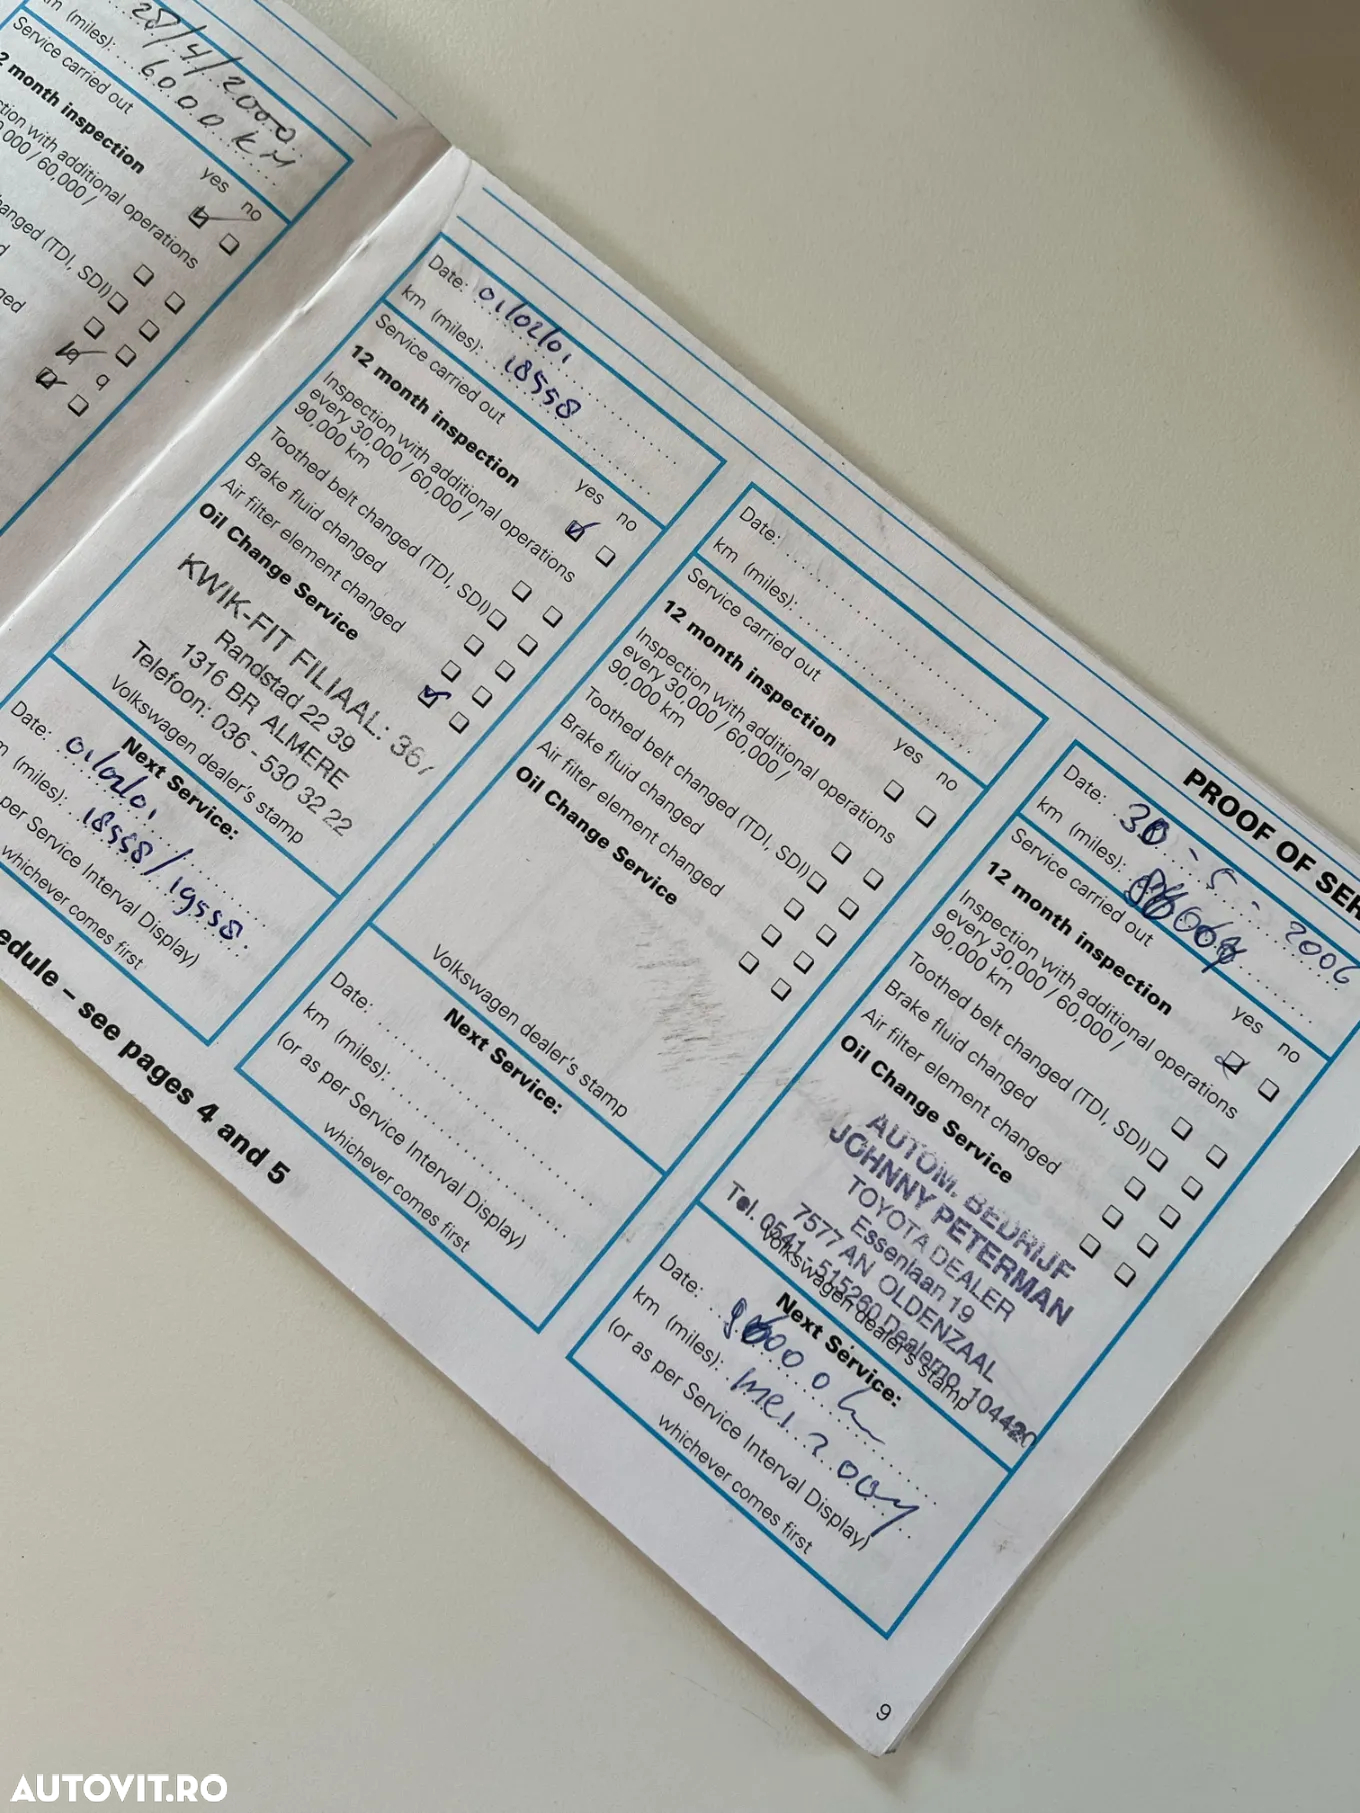 28/4/2000
km (miles): 6000 KM
Service carried out
yes no
2 month inspection
tion with additional operations
,000 / 60,000 /
hanged (TDI, SDI)
Date: 01/02/01
km (miles): 18558
Service carried out
yes no
12 month inspection
Inspection with additional operations
every 30,000 / 60,000 /
90,000 km
Toothed belt changed (TDI, SDI)
Brake fluid changed
Air filter element changed
Oil Change Service
KWIK-FIT FILIAAL: 367
Randstad 22 39
1316 BR ALMERE
Telefoon: 036 - 530 32 22
Volkswagen dealer's stamp
Next Service:
Date: 01/02/01
(miles): 18558/19558
per Service Interval Display)
whichever comes first
edule – see pages 4 and 5
Date:
km (miles):
Service carried out
yes no
12 month inspection
Inspection with additional operations
every 30,000 / 60,000 /
90,000 km
Toothed belt changed (TDI, SDI)
Brake fluid changed
Air filter element changed
Oil Change Service
Volkswagen dealer's stamp
Next Service:
Date:
km (miles):
(or as per Service Interval Display)
whichever comes first
PROOF OF SER
Date: 30-5-2006
km (miles):
Service carried out
yes no
12 month inspection
Inspection with additional operations
every 30,000 / 60,000 /
90,000 km
Toothed belt changed (TDI, SDI)
Brake fluid changed
Air filter element changed
Oil Change Service
AUTOM. BEDRIJF
JOHNNY PETERMAN
TOYOTA DEALER
Essenlaan 19
7577 AN OLDENZAAL
Tel. 0541 - 515260 Dealerno. 104420
Volkswagen dealer's stamp
Next Service:
Date:
km (miles): mei
(or as per Service Interval Display)
whichever comes first
9
AUTOVIT.RO